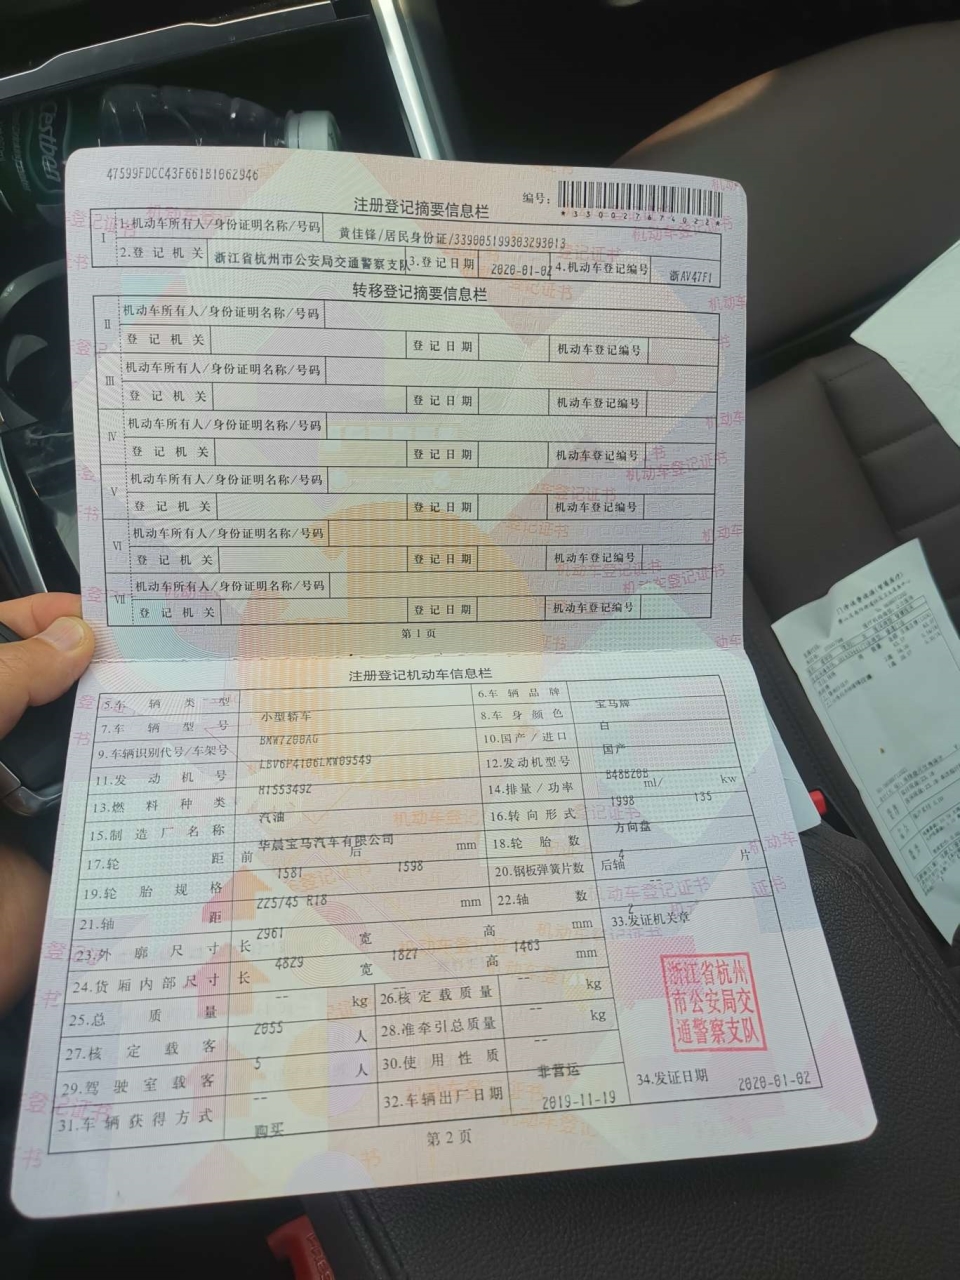 47599FDCC43F661B1062946
编号：
*330027674022*
注册登记摘要信息栏
I 1.机动车所有人/身份证明名称/号码 黄佳锋/居民身份证/339005199303293013
2.登记机关 浙江省杭州市公安局交通警察支队 3.登记日期 2020-01-02 4.机动车登记编号 浙AV47F1
转移登记摘要信息栏
II 机动车所有人/身份证明名称/号码
登记机关 登记日期 机动车登记编号
III 机动车所有人/身份证明名称/号码
登记机关 登记日期 机动车登记编号
IV 机动车所有人/身份证明名称/号码
登记机关 登记日期 机动车登记编号
V 机动车所有人/身份证明名称/号码
登记机关 登记日期 机动车登记编号
VI 机动车所有人/身份证明名称/号码
登记机关 登记日期 机动车登记编号
VII 机动车所有人/身份证明名称/号码
登记机关 登记日期 机动车登记编号
第1页
注册登记机动车信息栏
5.车辆类型 小型轿车 6.车辆品牌 宝马牌
7.车辆型号 BMW7200AG 8.车身颜色 白
9.车辆识别代号/车架号 LBV6P4106LMW09549 10.国产/进口 国产
11.发动机号 H155349Z 12.发动机型号 B48B20B
13.燃料种类 汽油 14.排量/功率 1998 ml/ 135 kw
15.制造厂名称 华晨宝马汽车有限公司 16.转向形式 方向盘
17.轮距 前 1581 后 1598 mm 18.轮胎数 4
19.轮胎规格 225/45 R18 20.钢板弹簧片数 后轴 -- 片
21.轴距 2961 mm 22.轴数 2
23.外廓尺寸 长 4829 宽 1827 高 1463 mm 33.发证机关章
24.货厢内部尺寸 长 -- 宽 -- 高 -- mm
浙江省杭州
市公安局交
通警察支队
25.总质量 2055 kg 26.核定载质量 -- kg
27.核定载客 5 人 28.准牵引总质量 -- kg
29.驾驶室载客 -- 人 30.使用性质 非营运
31.车辆获得方式 购买 32.车辆出厂日期 2019-11-19 34.发证日期 2020-01-02
第2页